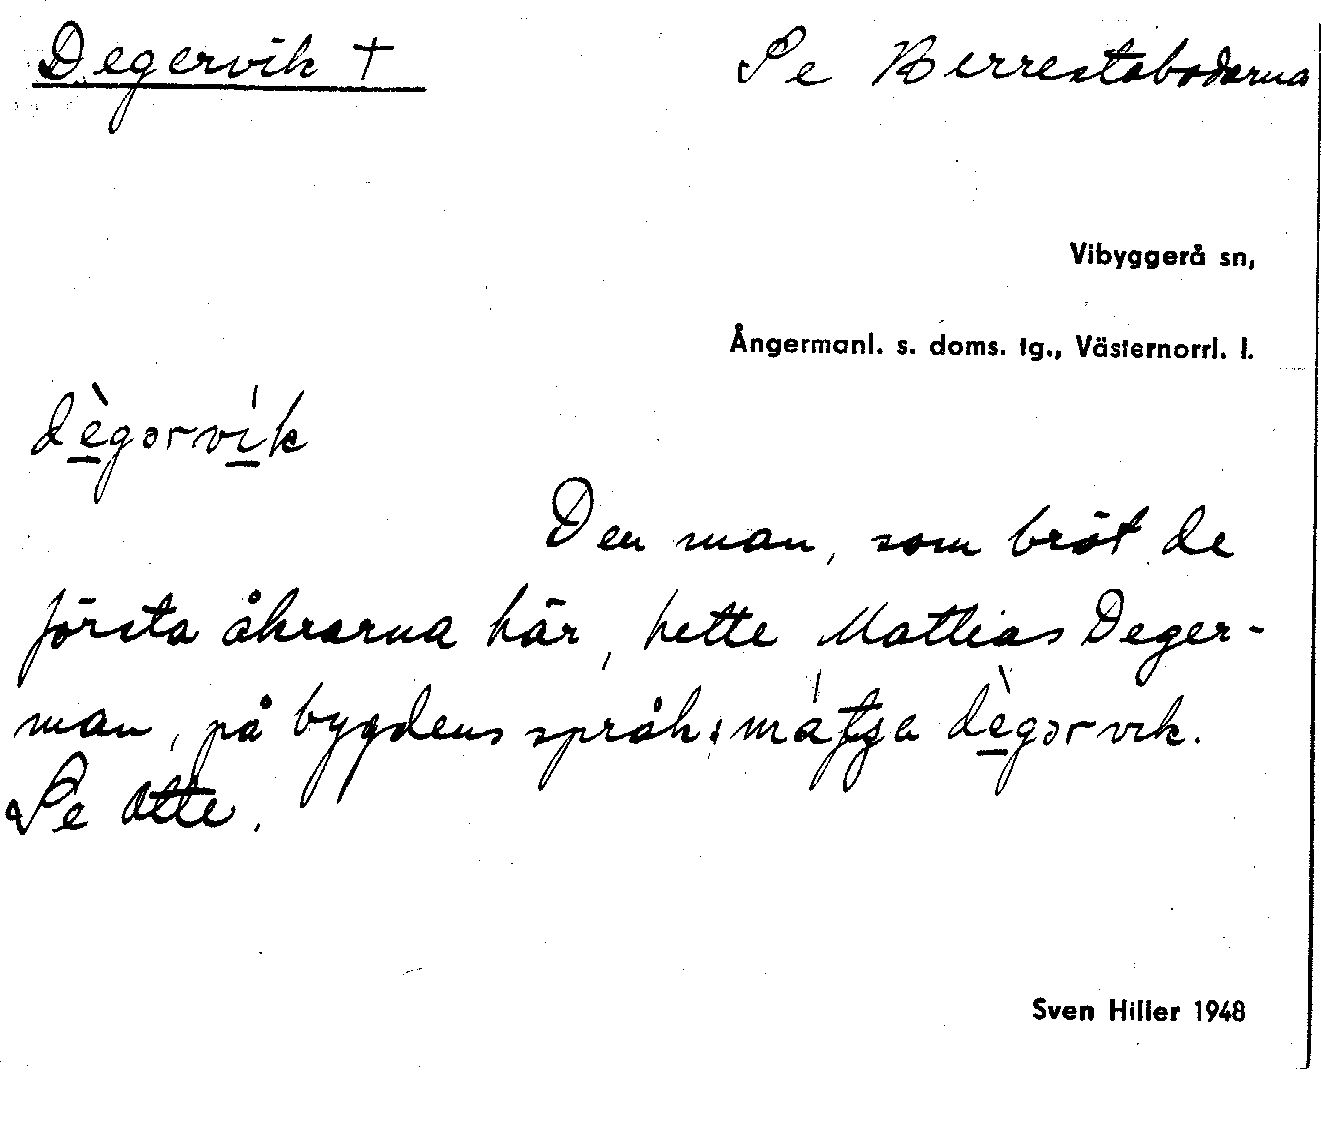 Degervik † Se Berrestabodarna
Vibyggerå sn,
Ångermanl. s. doms. tg., Västernorrl. l.
dègərvík
Den man, som bröt de
första åkrarna här, hette Mattias Deger-
man, på bygdens språk: dègərvik.
Se Otte.
Sven Hiller 1948